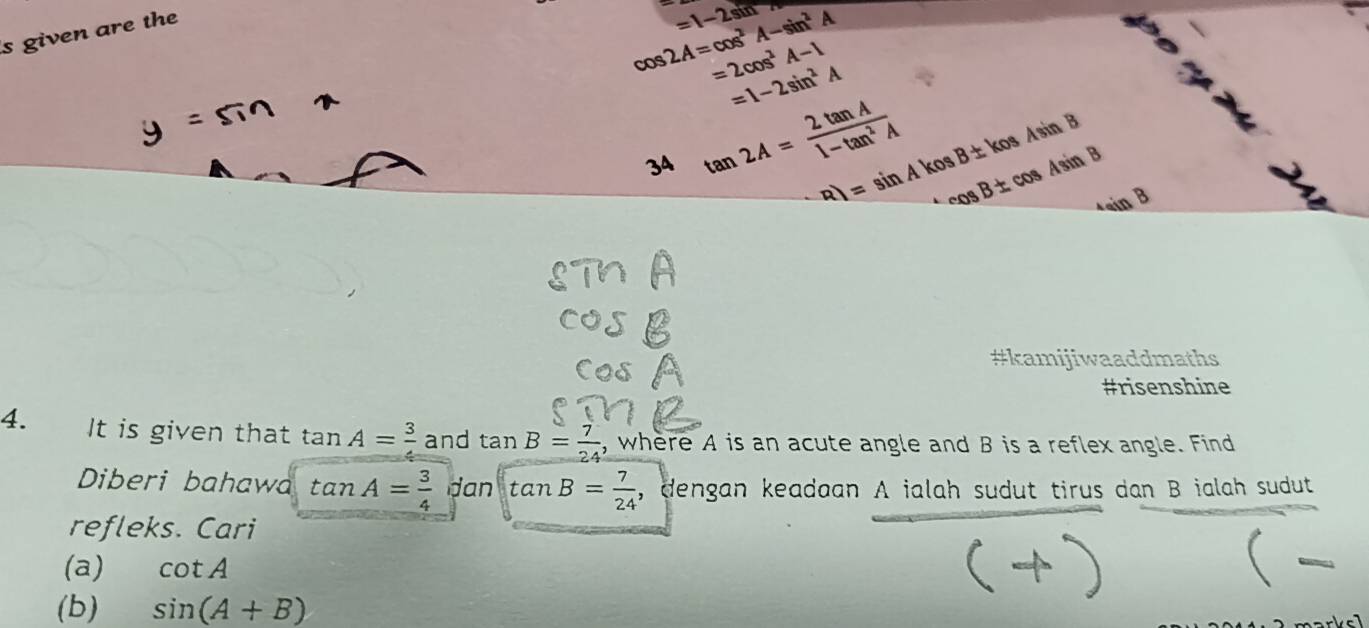 s given are the
=1-2sin
cos2A=cos² A-sin² A
=2cos² A-1
=1-2sin² A
y = sin x
34 tan 2A = \frac{2 tan A}{1-tan² A}
B) = sin A kos B ± kos A sin B
cos B ± cos A sin B
sin B
sin A
cos B
cos A
sin B
#kamijiwaaddmaths
#risenshine
4. It is given that tan A = \frac{3}{4} and tan B = \frac{7}{24}, where A is an acute angle and B is a reflex angle. Find
Diberi bahawa tan A = \frac{3}{4} dan tan B = \frac{7}{24}, dengan keadaan A ialah sudut tirus dan B ialah sudut
refleks. Cari
(+) (-
(a) cot A
(b) sin(A + B)
marks]